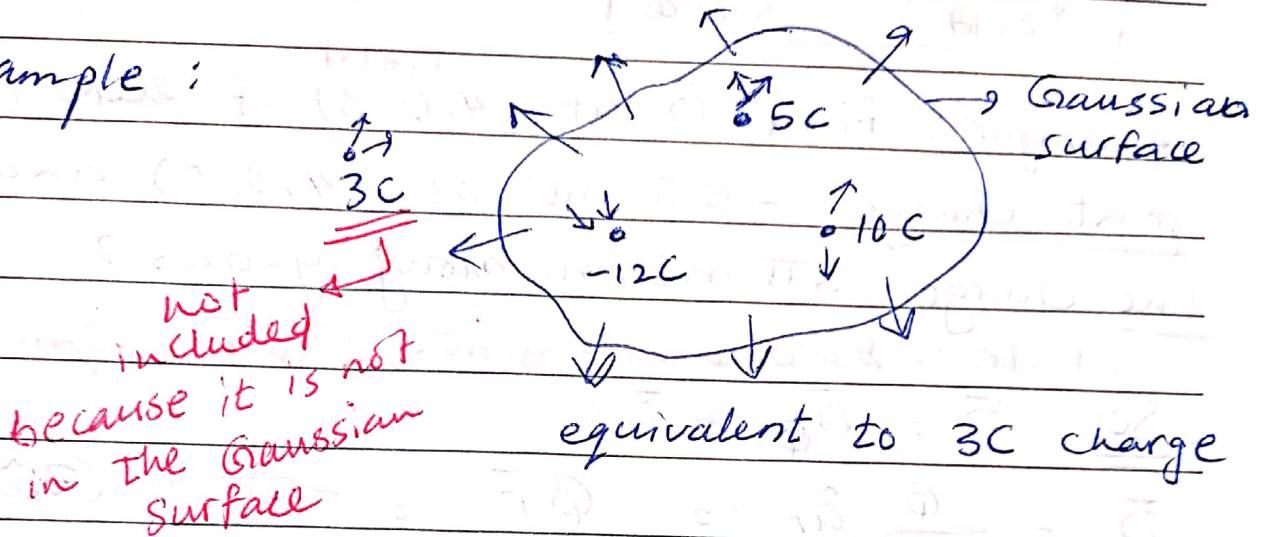 ample :
5C
Gaussian
surface
3C
-12C
10C
not
included
because it is not
in the Gaussian
surface
equivalent to 3C charge